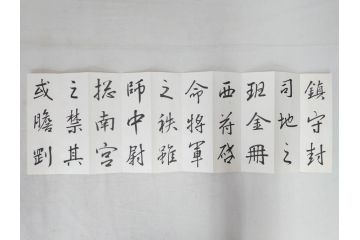 鎮守封
司地之
班金冊
西符啓
命将軍
之秩雖
師中尉
捴南宮
之禁其
或膽劉